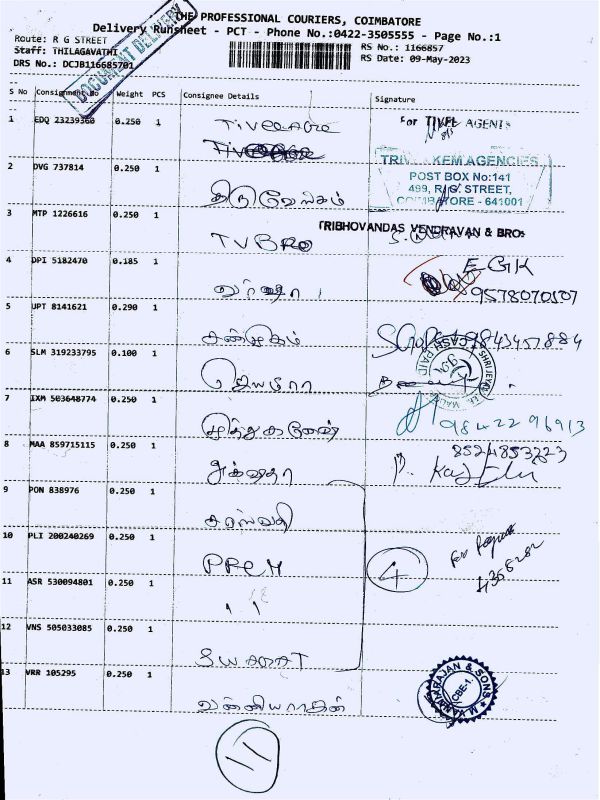 THE PROFESSIONAL COURIERS, COIMBATORE
Delivery Runsheet - PCT - Phone No.:0422-3505555 - Page No.:1
Route: R G STREET
RS No.: 1166857
Staff: THILAGAVATHI
RS Date: 09-May-2023
DRS No.: DCJB116685701
DOCUMENT DELIVERY
S No Consignment No Weight PCS Consignee Details Signature
1 EDQ 23239360 0.250 1
For TIVEL AGENTS
2 DVG 737814 0.250 1 திருவேலகம்
KEM AGENCIES
POST BOX No:141
499, R.G. STREET,
COIMBATORE - 641001
3 MTP 1226616 0.250 1 TVBRO
TRIBHOVANDAS VENDRAVAN & BROS
4 DPI 5182470 0.185 1 வர்ஷா
E-GK
9578070107
5 JPT 8141621 0.290 1 சண்முகம் 9843457884
6 SLM 319233795 0.100 1 ஜெயமாரா
CASH PAID
7 IXM 503648774 0.250 1 முத்துகணேஷ் 98422 96913
8 MAA 859715115 0.250 1 அக்ஷதா
8524853223
9 PON 838976 0.250 1 சரஸ்வதி
10 PLI 200240269 0.250 1 PREM
4
11 ASR 530094801 0.250 1 ''
12 VNS 505033085 0.250 1 SWAGAT
13 VRR 105295 0.250 1 வன்னியராஜன்
M. VANNIARAJAN & SONS
CBE-1.
11